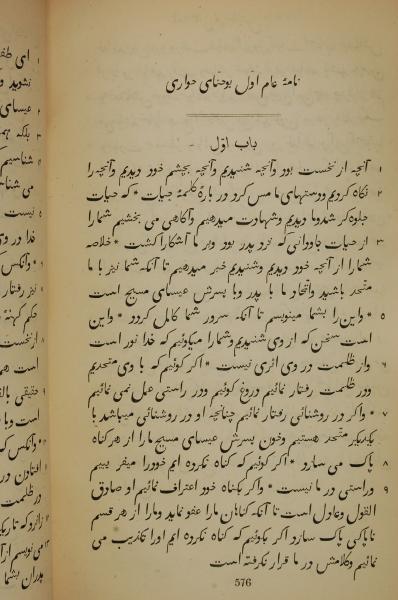 نامهٔ عام اوّل یوحنّای حواری
باب اوّل
۱ آنچه از نخست بود وآنچه شنیدیم وآنچه بچشم خود دیدیم وآنچه را
۲ نگاه کردیم ودستهای ما مس کرد در بارهٔ کلمهٔ حیات * که حیات
جلوه‌گر شد وما دیدیم وشهادت میدهیم وآگاهی می بخشیم شما را
۳ از حیات جاودانی که نزد پدر بود وبر ما آشکارا گشت * خلاصه
شما را از آنچه خود دیدیم وشنیدیم خبر میدهیم تا آنکه شما نیز با ما
متّحد باشید واتّحاد ما با پدر وبا پسرش عیسای مسیح است
۵ * واین را بشما مینویسم تا آنکه سرور شما کامل گردد * واین
است سخن که از وی شنیدیم وشما را میگوئیم که خدا نور است
۶ واز ظلمت در وی اثری نیست * اگر گوئیم که با وی متّحدیم
ودر ظلمت رفتار نمائیم دروغ گوئیم ودر راستی عمل نمی نمائیم
۷ * واگر در روشنائی رفتار نمائیم چنانچه او در روشنائی میباشد با
یکدیگر متّحد هستیم وخون پسرش عیسای مسیح ما را از هر گناه
۸ پاک می سازد * اگر گوئیم که گناه نکرده ایم خود را
۹ وراستی در ما نیست * واگر بگناه خود اعتراف نمائیم او صادق
القول وعادل است تا آنکه گناهان ما را عفو نماید وما را از هر قسم
ناپاکی پاک سازد اگر بگوئیم که گناه نکرده ایم او را تکذیب می
نمائیم وکلامش در ما قرار نگرفته است
576